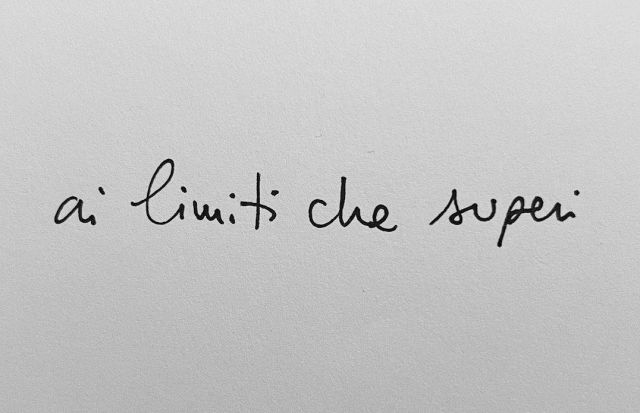 ai limiti che superi